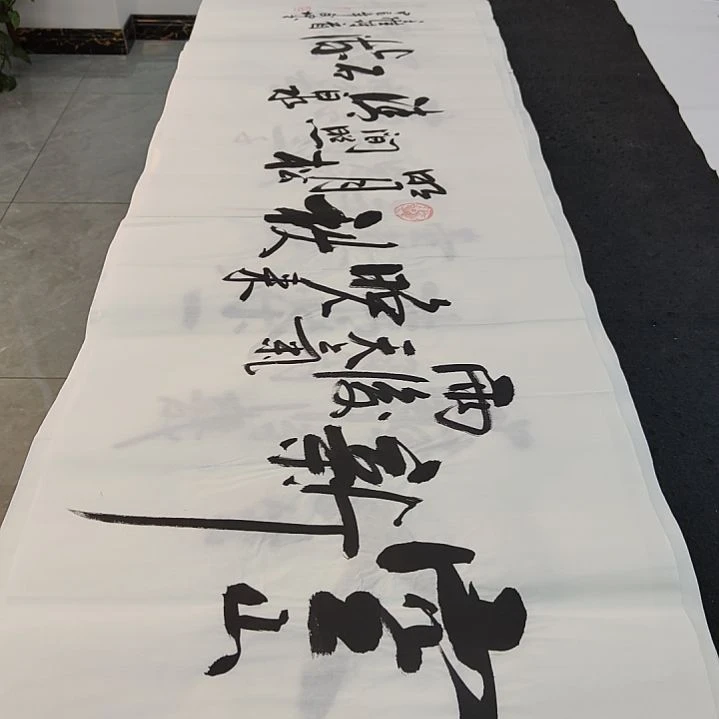 空山
新
雨後
天氣
晚來
秋
明月松
間照
清泉
石上流